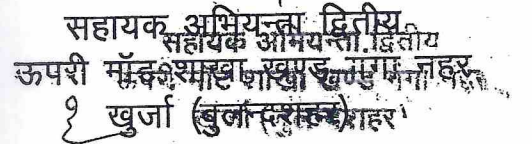 सहायक अभियन्ता द्वितीय
सहायक अभियन्ता द्वितीय
ऊपरी माँट शाखा खण्ड गंगा नहर
खुर्जा (बुलन्दशहर)